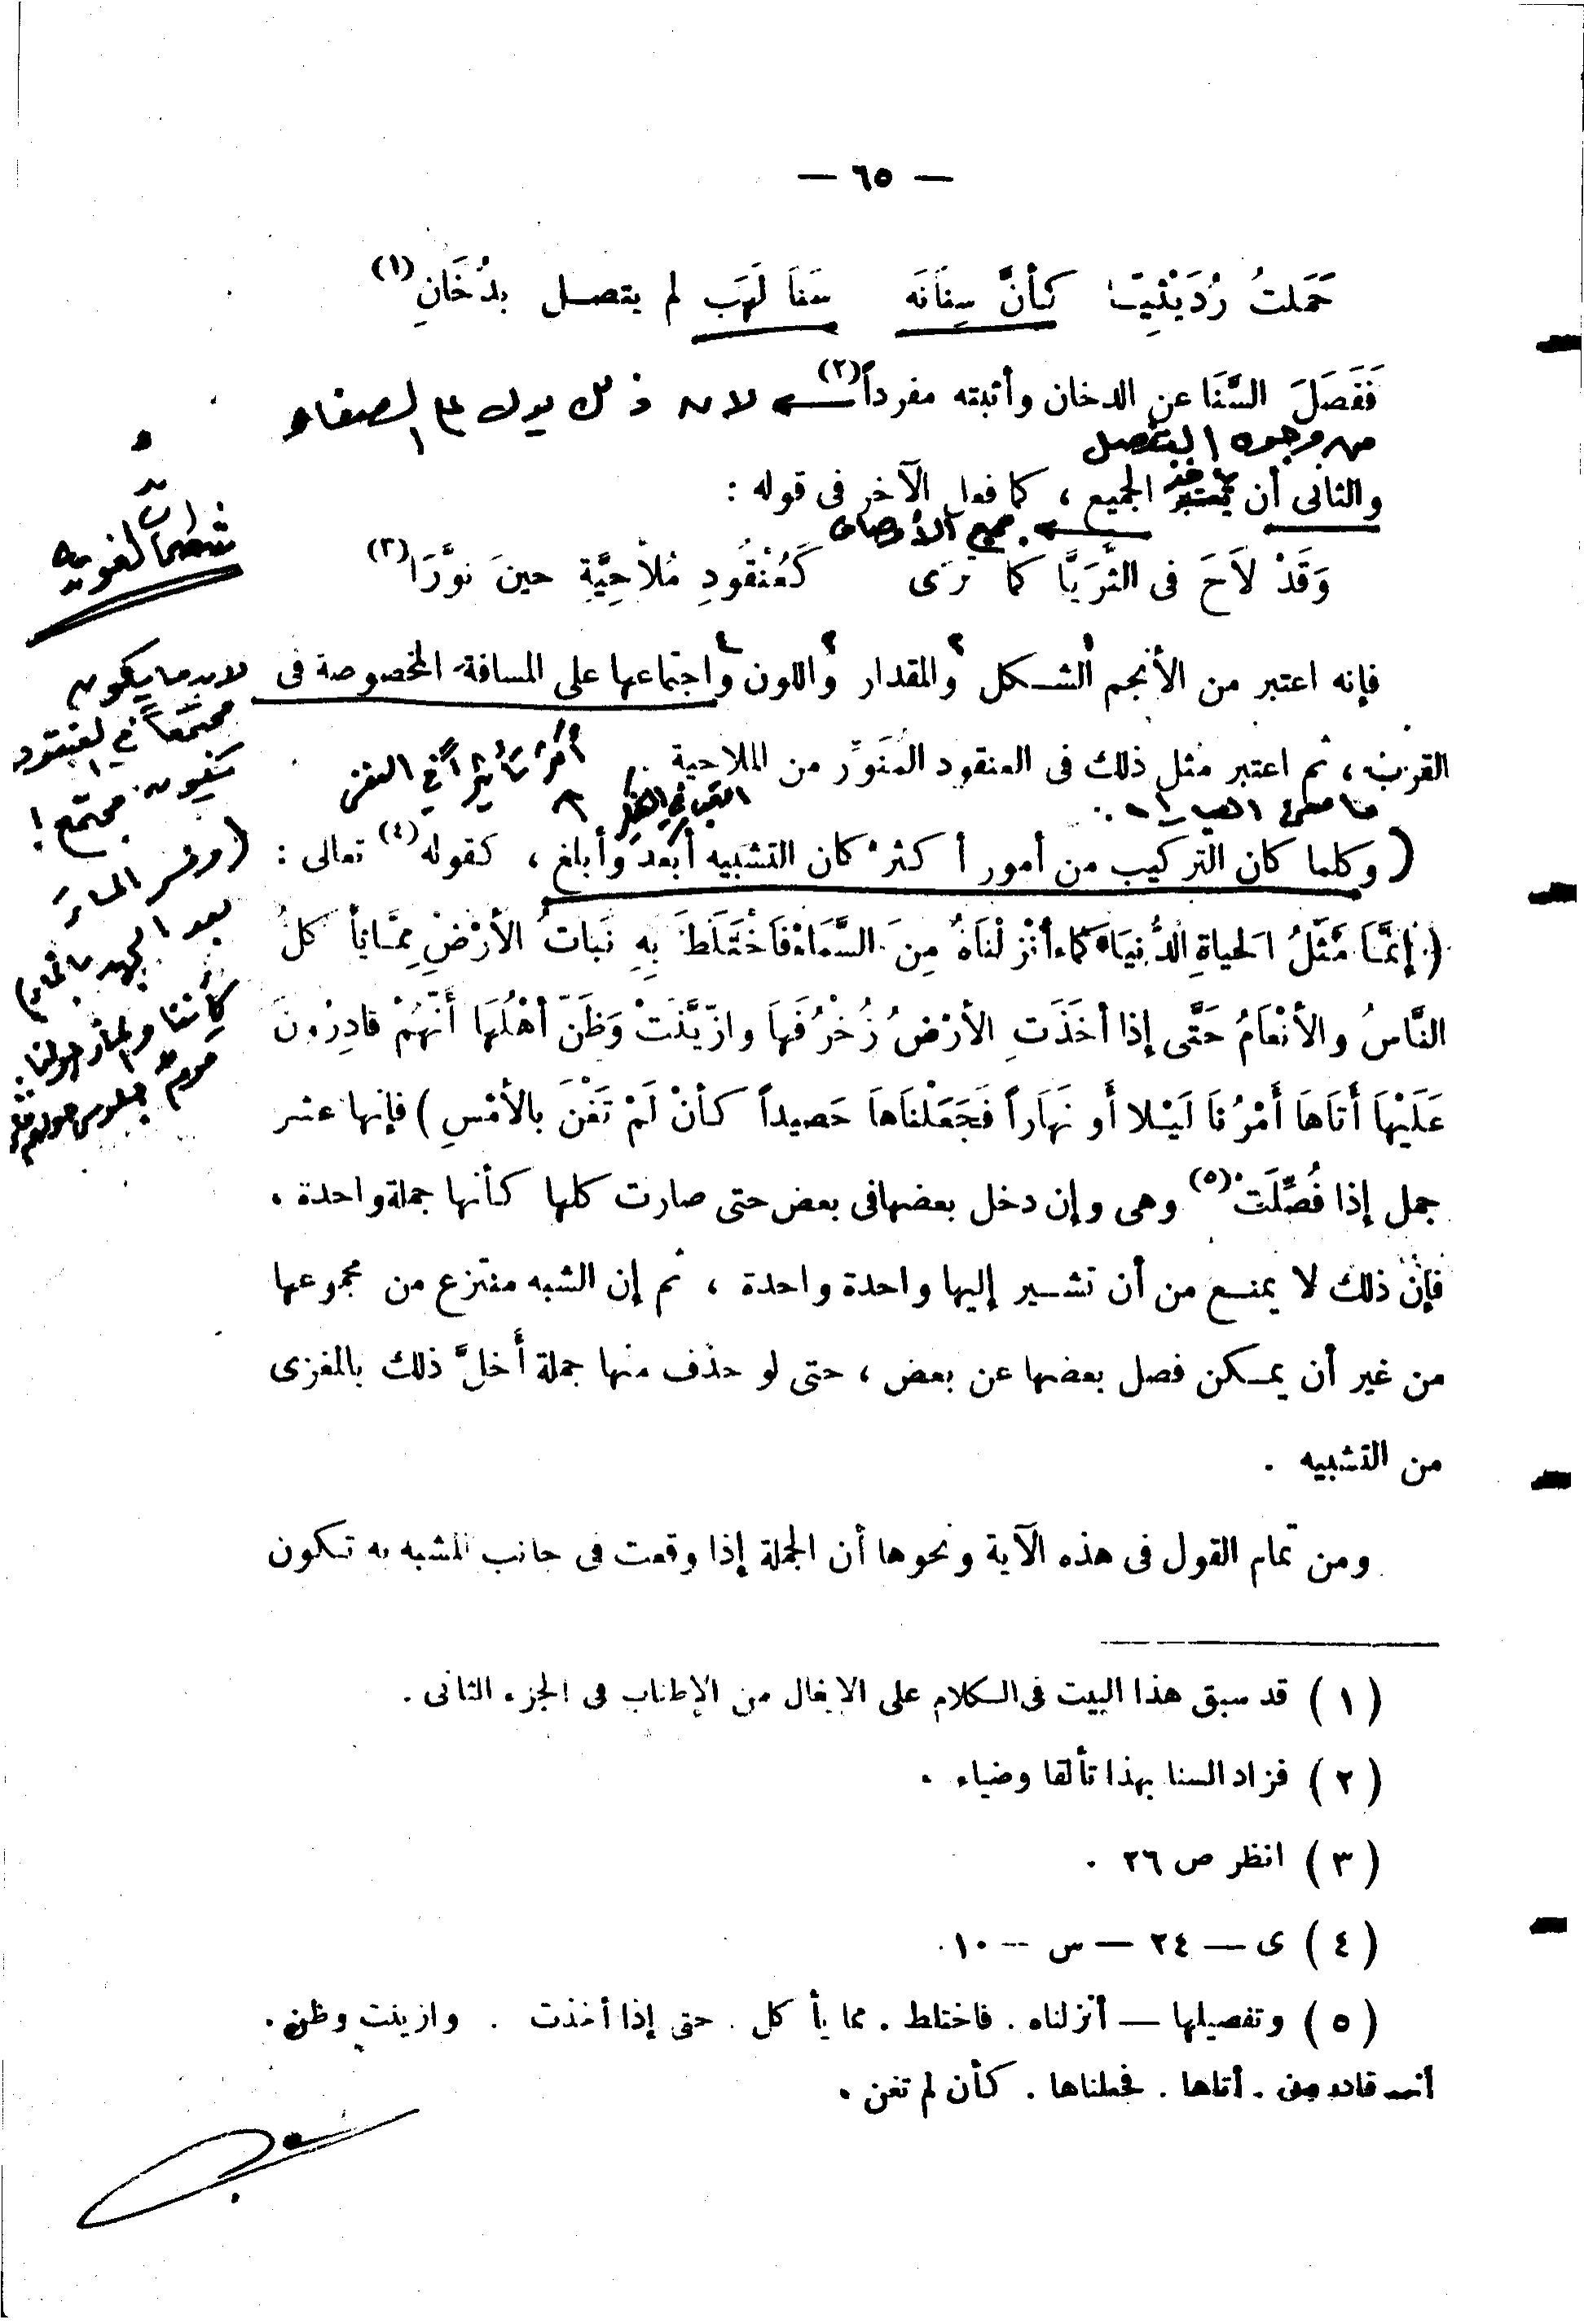 — ٦٥ —
حَمَلتُ رُدَيْنِيًّا كأنَّ سِنَانَه سَنَا لَهَبٍ لم يتصل بدُخَانِ (١)
فَفَصَلَ السَّنَا عن الدخان وأثبته مفرداً (٢) لأنه ذلك يدل على الصفاء
من وجوه التفصيل
والثانى أن يعتبر الجميع ، كما فعل الآخر فى قوله :
جميع الأوصاف
وَقَدْ لاَحَ فى الثُّرَيَّا كما ترى كَعُنْقُودِ مُلاَّحِيَّةٍ حينَ نوَّرَا (٣)
فإنه اعتبر من الأنجم الشكل والمقدار واللون واجتماعها على المسافة المخصوصة فى
القرب ، ثم اعتبر مثل ذلك فى العنقود المُنَوِّر من الملاحية .
أكثر تأثيراً في النفس
( وكلما كان التركيب من أمور أكثر كان التشبيه أبعد وأبلغ ، كقوله (٤) تعالى :
( إنَّمَا مَثَلُ الحياةِ الدُّنيَا كَمَاء أنْزَلْنَاهُ مِنَ السَّمَاء فَاخْتَلَطَ بِهِ نَبَاتُ الأرْضِ مِمَّا يَأ كلُ
النَّاسُ والأنْعَامُ حَتَّى إذا أخَذَتِ الأرْضُ زُخْرُفَهَا وازّيَّنَتْ وَظَنّ أهْلُهَا أَنَّهُمْ قادِرُونَ
عَلَيْهَا أَتَاهَا أَمْرُنَا لَيْلا أو نهَاراً فَجَعَلْنَاهَا حَصيداً كأنْ لَمْ تَغْنَ بالأمْسِ ) فإنها عشر
جمل إذا فُصِّلَت (٥) وهى وإن دخل بعضها فى بعض حتى صارت كلها كأنها جملة واحدة .
فإن ذلك لا يمنع من أن تشير إليها واحدة واحدة ، ثم إن الشبه منتزع من مجموعها
من غير أن يمكن فصل بعضها عن بعض ، حتى لو حذف منها جملة أَخلَّ ذلك بالمغزى
من التشبيه .
ومن تمام القول فى هذه الآية ونحوها أن الجملة إذا وقعت فى جانب المشبه به تكون
( ١ ) قد سبق هذا البيت فى الكلام على الايغال من الإطناب فى الجزء الثانى .
( ٢ ) فزاد السنا بهذا تألقا وضياء .
( ٣ ) انظر ص ٢٦ .
( ٤ ) ى — ٢٤ — س — ١٠ .
( ٥ ) وتفصيلها — أنزلناه . فاختلط . مما يأ كل . حتى إذا أخذت . وازينت وظن .
أنهم قادرون . أتاها . فجعلناها . كأن لم تغن .
لابد ما يكون
مجتمعاً في العنقود
سيكون مجتمع !
( وفسر الماءَ
بعد الجهد بالماء )
كأننا والماء من حولنا
قومٌ جلوس حولهم ماء